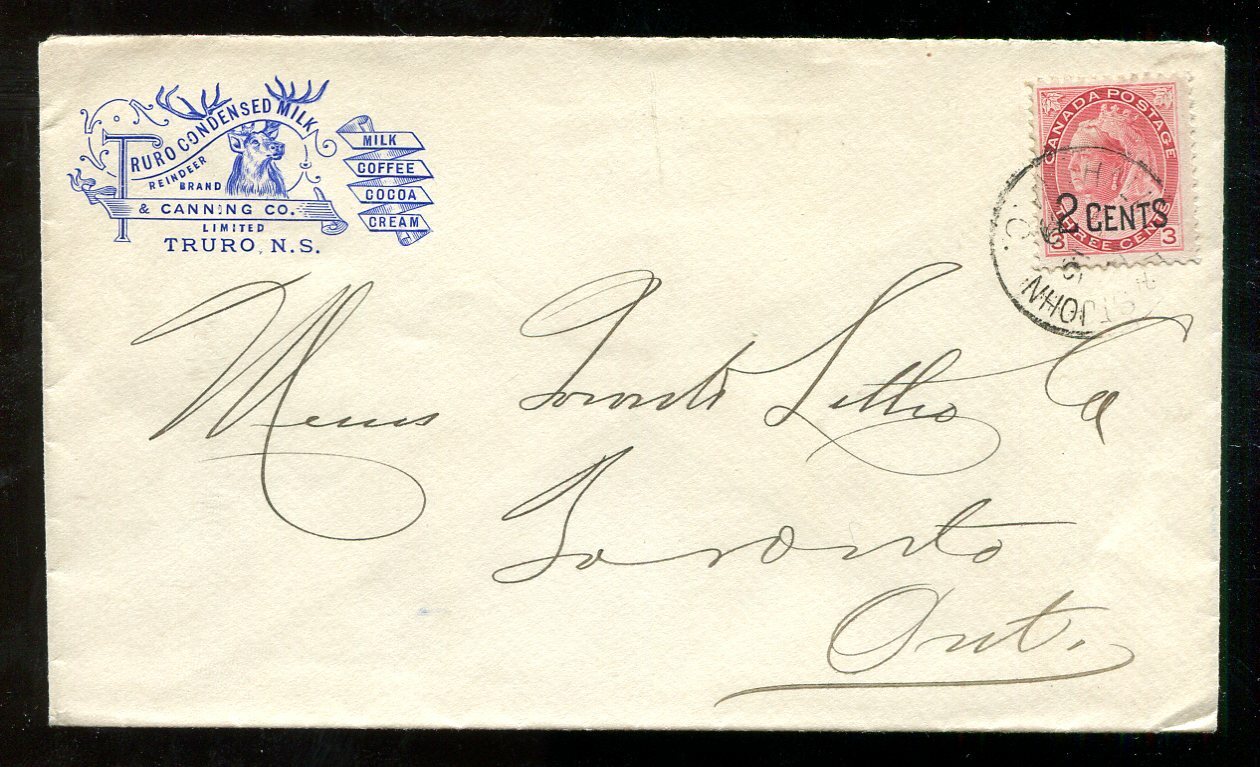 TRURO CONDENSED MILK
REINDEER
BRAND
& CANNING CO.
LIMITED
TRURO, N.S.
MILK
COFFEE
COCOA
CREAM
CANADA POSTAGE
2 CENTS
THREE CENTS
3 3
ST JOHN
Messrs Toronto Litho Co
Toronto
Ont.